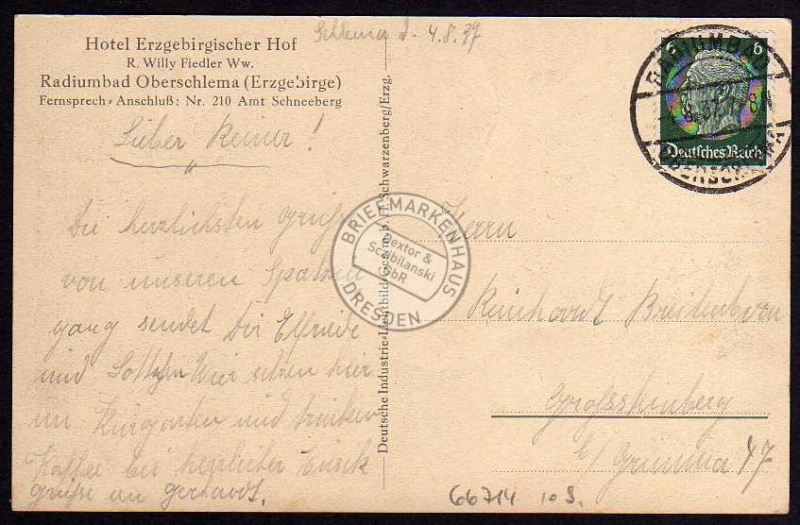 Hotel Erzgebirgischer Hof
R. Willy Fiedler Ww.
Radiumbad Oberschlema (Erzgebirge)
Fernsprech-Anschluß: Nr. 210 Amt Schneeberg
Schlema d. 4.8.37
Lieber Reiner!
Die herzlichsten Grüße
von unseren Spazier
gang sendet Dir Elfriede
und Wir sitzen hier
im Kurgarten und trinken
Kaffee bei herrlicher Musik
Grüße an Gerhardt.
Deutsche Industrie-Lichtbild-Ges. m. b. H. Schwarzenberg/Erzg.
6 6
Deutsches Reich
RADIUMBAD
OBERSCHLEMA
BRIEFMARKENHAUS
Dextor &
Sczibilanski
GbR
DRESDEN
Herrn
Reinhardt Breitenborn
Großsteinberg
b/ Grimma 47
66714 10 S.